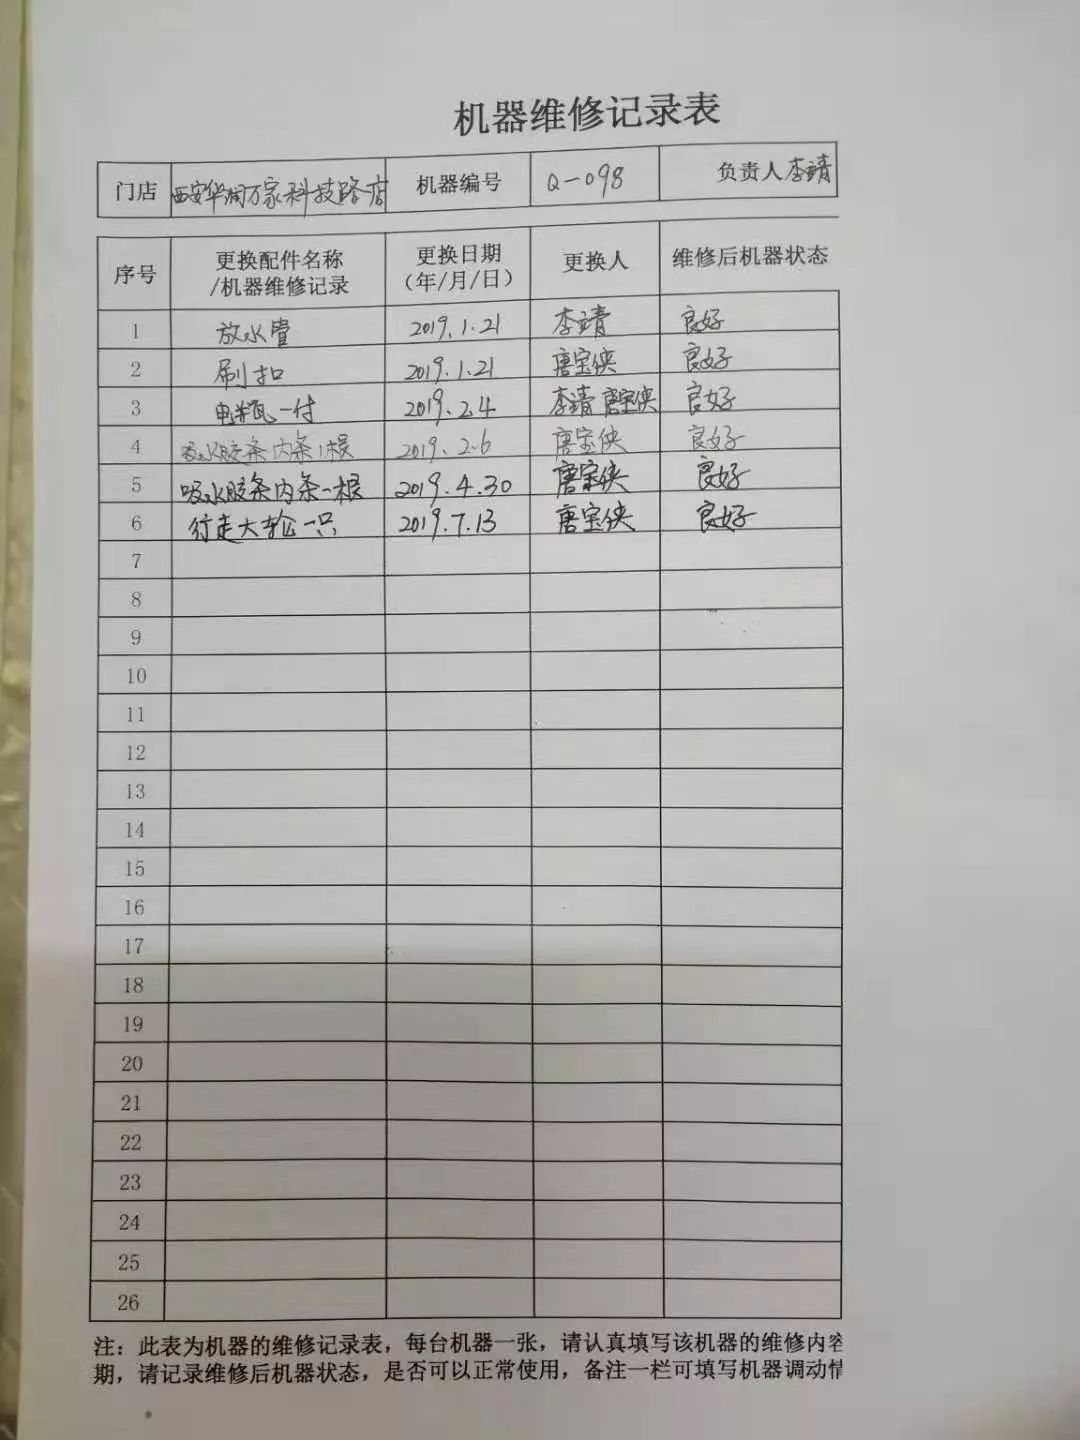 机器维修记录表
门店 西安华润万家科技路店 机器编号 Q-098 负责人 李靖
序号 更换配件名称/机器维修记录 更换日期(年/月/日) 更换人 维修后机器状态
1 放水管 2019.1.21 李靖 良好
2 刷扣 2019.1.21 唐宝侠 良好
3 电瓶一付 2019.2.4 李靖 唐宝侠 良好
4 吸水胶条内条1根 2019.2.6 唐宝侠 良好
5 吸水胶条内条一根 2019.4.30 唐宝侠 良好
6 行走大轮一只 2019.7.13 唐宝侠 良好
7
8
9
10
11
12
13
14
15
16
17
18
19
20
21
22
23
24
25
26
注：此表为机器的维修记录表，每台机器一张，请认真填写该机器的维修内容
期，请记录维修后机器状态，是否可以正常使用，备注一栏可填写机器调动情